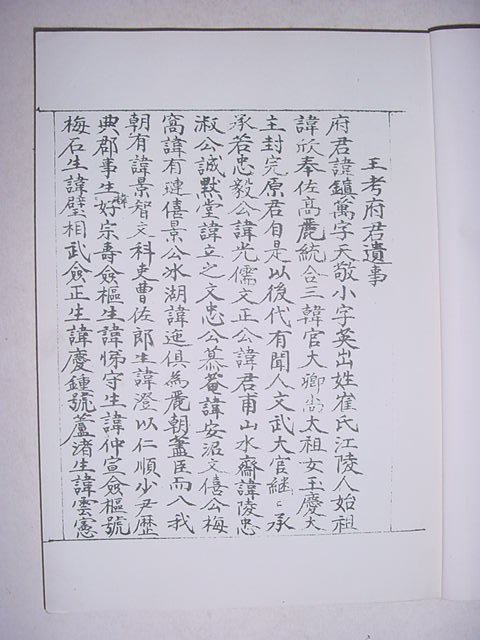 王考府君遺事
府君諱鎭萬字天敬小字英出姓崔氏江陵人始祖
諱欣奉佐高麗統合三韓官大卿尚太祖女王慶大
主封完原君自是以後代有聞人文武大官継〻承
承若忠毅公諱光儒文正公諱君甫山水齋諱陵忠
淑公誠默堂諱立之文忠公慕菴諱安沼文僖公梅
窩諱有漣僖景公氷湖諱迤俱為麗朝藎臣而入我
朝有諱景智文科吏曹佐郎生諱澄以仁順少尹歴
典郡事生諱好宗壽僉樞生諱悌守生諱仲宣僉樞號
梅石生諱壁相武僉正生諱慶鍾號蘆渚生諱雲憲